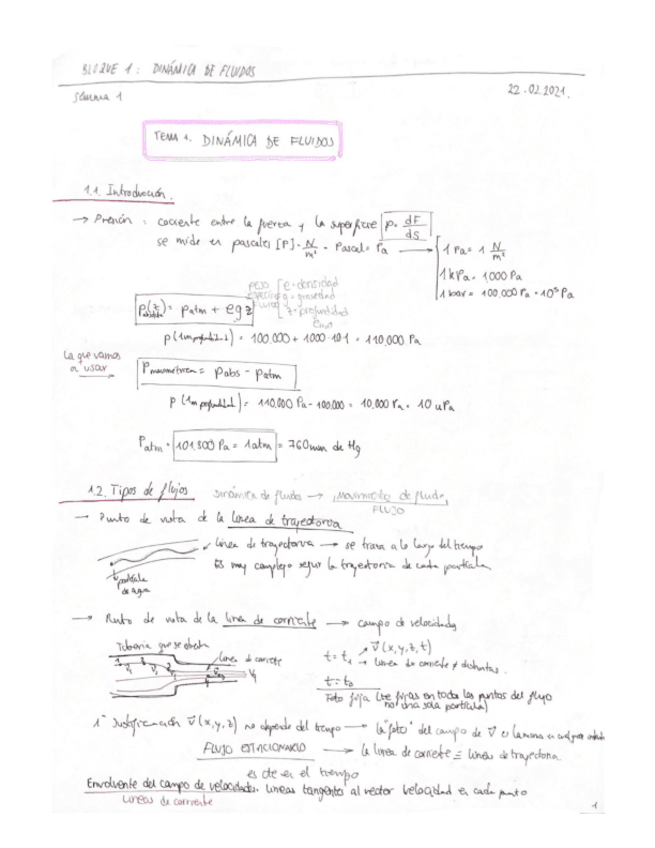 BLOQUE 1: DINÁMICA DE FLUIDOS
Semana 1
22-02-2021.
TEMA 1. DINÁMICA DE FLUIDOS
1.1. Introducción.
→ Presión: cociente entre la fuerza y la superficie p = dF/dS
se mide en pascales [P] = N/m² = Pascal = Pa → 1 Pa = 1 N/m²
1 kPa = 1000 Pa
1 bar = 100.000 Pa = 10⁵ Pa
P(z) = Patm + ρgz
PESO ESPECÍFICO FLUIDO
ρ = densidad
g = gravedad
z = profundidad
p(1m profundidad) = 100.000 + 1000·10·1 = 110.000 Pa
La que vamos a usar →
Pmanométrica = Pabs - Patm
p (1m profundidad) = 110.000 Pa - 100.000 = 10.000 Pa = 10 kPa
Patm = 101.300 Pa = 1atm = 760mm de Hg
1.2. Tipos de flujos
Dinámica de fluidos → movimiento de fluido
FLUJO
→ Punto de vista de la línea de trayectoria
línea de trayectoria → se traza a lo largo del tiempo
Es muy complejo seguir la trayectoria de cada partícula
partícula de agua
→ Punto de vista de la línea de corriente → campo de velocidades
Tubería que se estrecha
línea de corriente
t = t₁ → v(x,y,z,t)
→ líneas de corriente ≠ distintas.
t = t₂
Foto fija (te fijas en todos los puntos del flujo
no una sola partícula)
1ª Justificación v(x,y,z) no depende del tiempo → la "foto" del campo de v es la misma en
FLUJO ESTACIONARIO → la línea de corriente ≡ líneas de trayectoria
es de en el tiempo
Envolvente del campo de velocidades. Líneas tangentes al vector velocidad en cada punto
Líneas de corriente
1